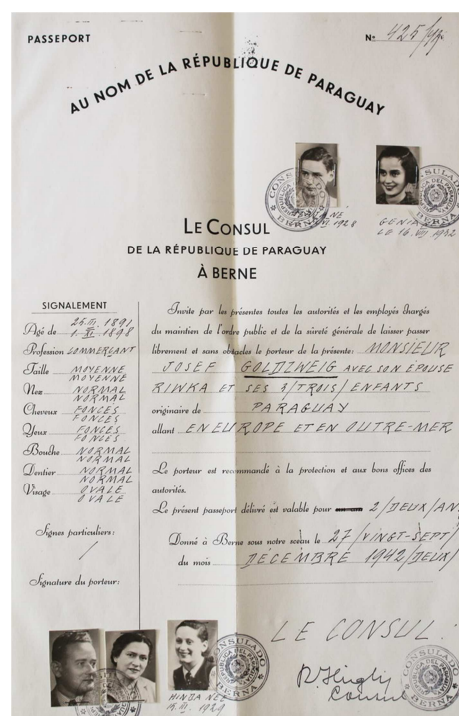 PASSEPORT
No 425/
AU NOM DE LA RÉPUBLIQUE DE PARAGUAY
CONSULADO
BERNA
CONSULADO
BERNA
NE
1928
GENIA
LE 16. VIII 1932
LE CONSUL
DE LA RÉPUBLIQUE DE PARAGUAY
À BERNE
SIGNALEMENT
25. III. 1891
Agé de 1. 1898
Profession COMMERÇANT
Taille MOYENNE
MOYENNE
Nez NORMAL
NORMAL
Cheveux FONCÉS
FONCÉS
Yeux FONCÉS
FONCÉS
Bouche NORMAL
NORMAL
Dentier NORMAL
NORMAL
Visage OVALE
OVALE
Signes particuliers:
/
Signature du porteur:
Invite par les présentes toutes les autorités et les employés chargés
du maintien de l'ordre public et de la sûreté générale de laisser passer
librement et sans obstacles le porteur de la présente: MONSIEUR
JOSEF GOLDZWEIG AVEC SON ÉPOUSE
RIWKA ET SES 3/TROIS/ENFANTS
originaire de PARAGUAY
allant EN EUROPE ET EN OUTRE-MER
Le porteur est recommandé à la protection et aux bons offices des
autorités.
Le présent passeport délivré est valable pour 2/DEUX/AN
Donné à Berne sous notre sceau le 27/VINGT-SEPT/
du mois DÉCEMBRE 1942/DEUX/
LE CONSUL:
R. Hügli
Consul
CONSULADO
BERNA
CONSULADO
BERNA
HINDA NE
1929